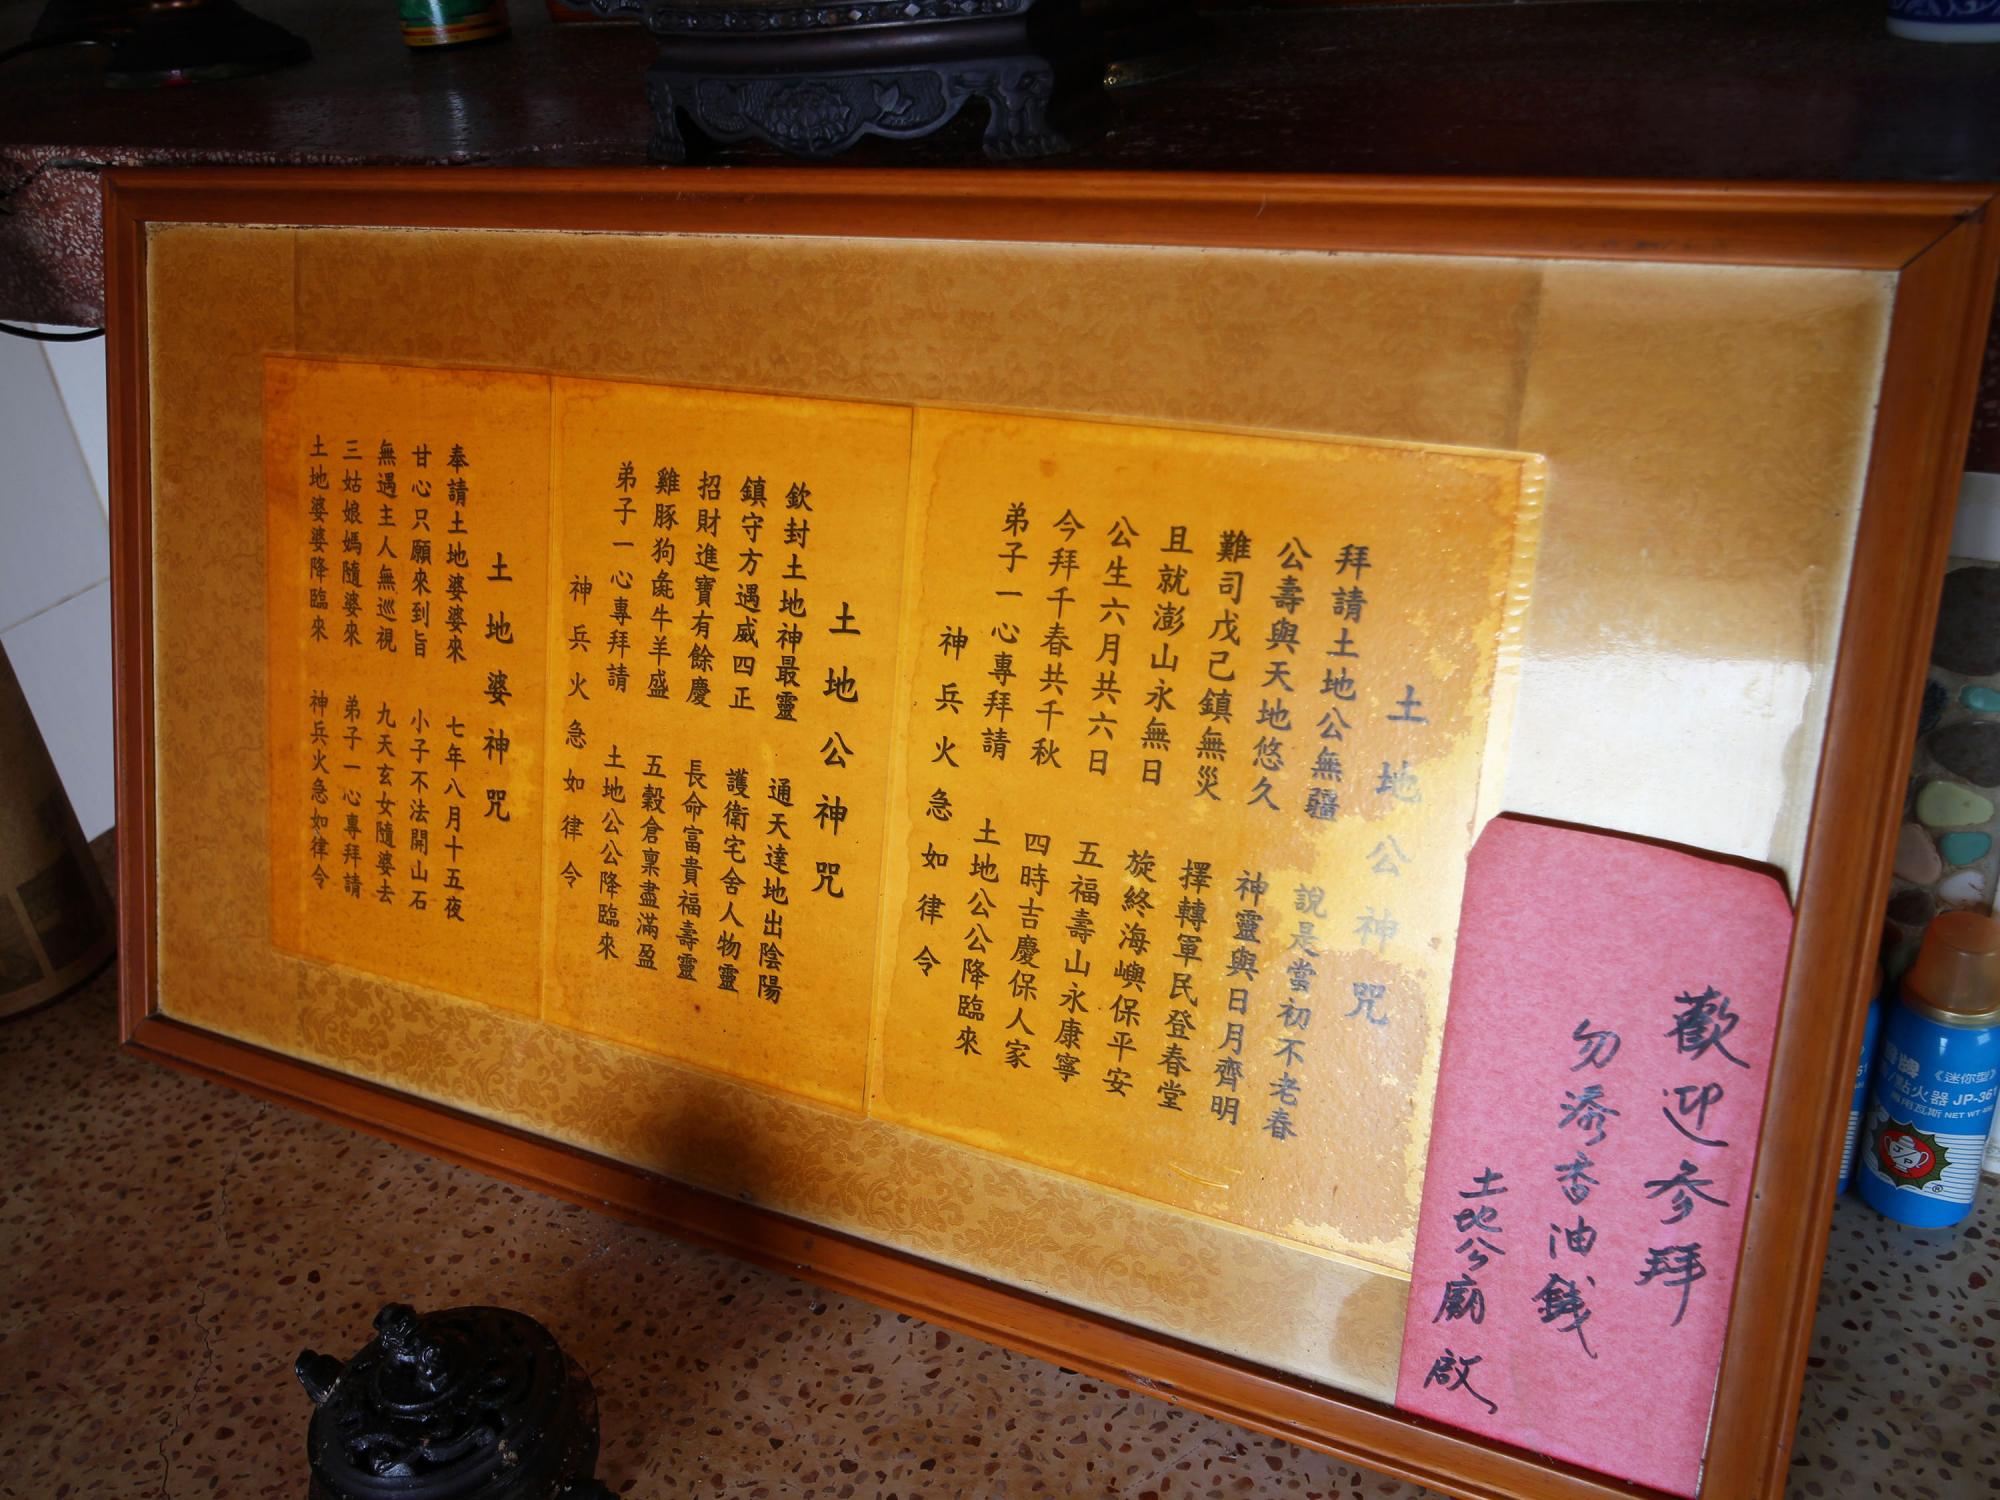 土地公神咒
拜請土地公無疆
說是當初不老春
公壽與天地悠久
神靈與日月齊明
難司戊己鎮無災
擇轉軍民登春堂
且就澎山永無日
旋終海嶼保平安
公生六月共六日
五福壽山永康寧
今拜千春共千秋
四時吉慶保人家
弟子一心專拜請
土地公公降臨來
神兵火急如律令
土地公神咒
欽封土地神最靈
通天達地出陰陽
鎮守方遇威四正
護衛宅舍人物靈
招財進寶有餘慶
長命富貴福壽靈
雞豚狗彘牛羊盛
五穀倉稟盡滿盈
弟子一心專拜請
土地公公降臨來
神兵火急如律令
土地婆神咒
奉請土地婆婆來
七年八月十五夜
甘心只願來到旨
小子不法開山石
無遇主人無巡視
九天玄女隨婆去
三姑娘媽隨婆來
弟子一心專拜請
土地婆婆降臨來
神兵火急如律令
歡迎參拜
勿添香油錢
土地公廟啟
《迷你型》
點火器 JP-361
專用瓦斯 NET WT
JP